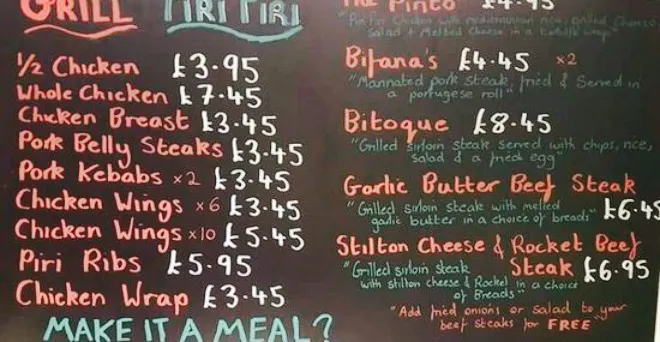 GRILL PIRI PIRI
½ Chicken £3.95
Whole Chicken £7.45
Chicken Breast £3.45
Pork Belly Steaks £3.45
Pork Kebabs x2 £3.45
Chicken Wings x6 £3.45
Chicken Wings x10 £5.45
Piri Ribs £5.95
Chicken Wrap £3.45
MAKE IT A MEAL?
The Pinto £4.95
"Piri Piri Chicken with mediterranean rice, grilled
Salad + Melted Cheese in a tortilla wrap"
Bifana's £4.45 x2
"Marinated pork steak, fried & Served in
a portugese roll"
Bitoque £8.45
"Grilled sirloin steak served with chips, rice,
salad & a fried egg"
Garlic Butter Beef Steak
"Grilled sirloin steak with melted
garlic butter in a choice of breads" £6.45
Stilton Cheese & Rocket Beef
Steak £6.95
"Grilled sirloin steak
with stilton cheese & Rocket in a choice
of Breads"
"Add fried onions or salad to your
beef steaks for FREE"